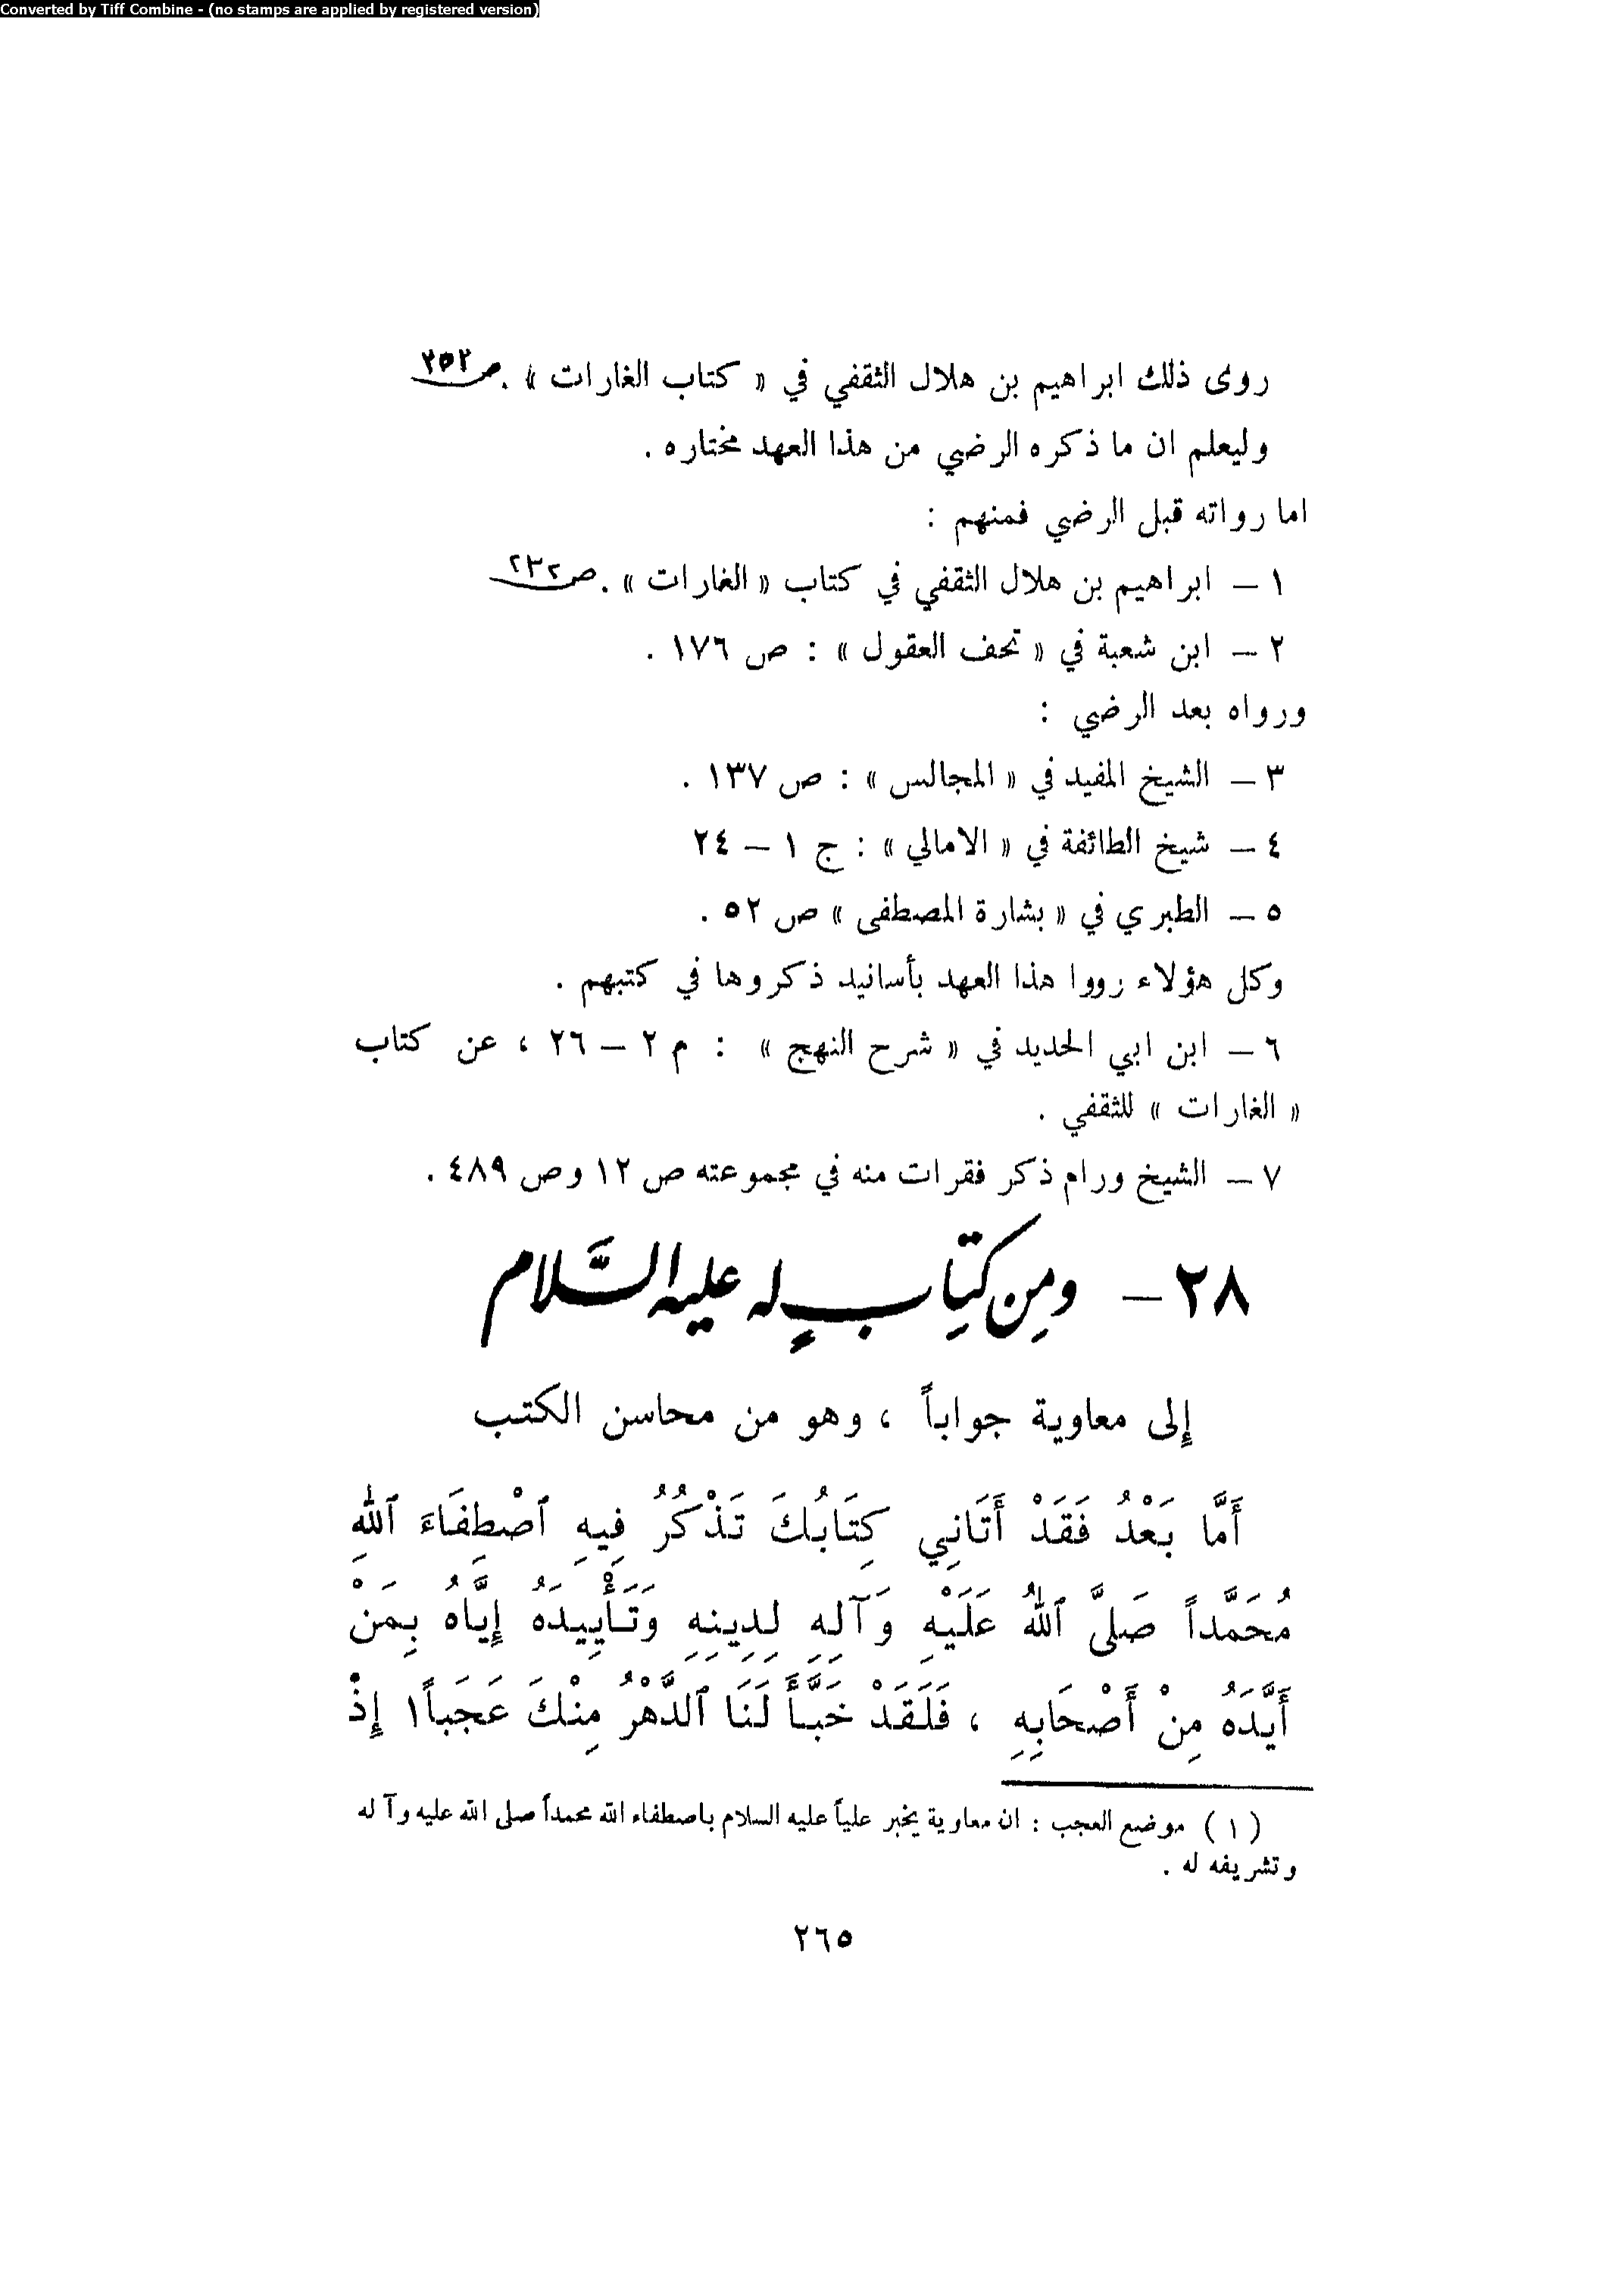 Converted by Tiff Combine - (no stamps are applied by registered version)
روى ذلك ابراهيم بن هلال الثقفي في « كتاب الغارات » . ص٢٥٢
وليعلم ان ما ذكره الرضي من هذا العهد مختاره .
اما رواته قبل الرضي فمنهم :
١ – ابراهيم بن هلال الثقفي في كتاب « الغارات » . ص٢٣٢
٢ – ابن شعبة في « تحف العقول » : ص ١٧٦ .
ورواه بعد الرضي :
٣ – الشيخ المفيد في « المجالس » : ص ١٣٧ .
٤ – شيخ الطائفة في « الامالي » : ج ١ – ٢٤
٥ – الطبري في « بشارة المصطفى » ص ٥٢ .
وكل هؤلاء رووا هذا العهد بأسانيد ذكروها في كتبهم .
٦ – ابن ابي الحديد في « شرح النهج » : م ٢ – ٢٦ ، عن كتاب
« الغارات » للثقفي .
٧ – الشيخ ورام ذكر فقرات منه في مجموعته ص ١٢ وص ٤٨٩ .
٢٨ – ومِن كتِابٍ له عليه السَّلام
إلى معاوية جواباً ، وهو من محاسن الكتب
أَمَّا بَعْدُ فَقَدْ أَتَانِي كِتَابُكَ تَذْكُرُ فِيهِ ٱصْطِفَاءَ ٱللهِ
مُحَمَّداً صَلىَّ ٱللهُ عَلَيْهِ وَآلِهِ لِدِينِهِ وَتَأْيِيدَهُ إِيَّاهُ بِمَنْ
أَيَّدَهُ مِنْ أَصْحَابِهِ ، فَلَقَدْ خَبَّأَ لَنَا ٱلدَّهْرُ مِنْكَ عَجَباً١ إِذْ
( ١ ) موضع العجب : ان معاوية يخبر علياً عليه السلام باصطفاء الله محمداً صلى الله عليه وآله
وتشريفه له .
٢٦٥